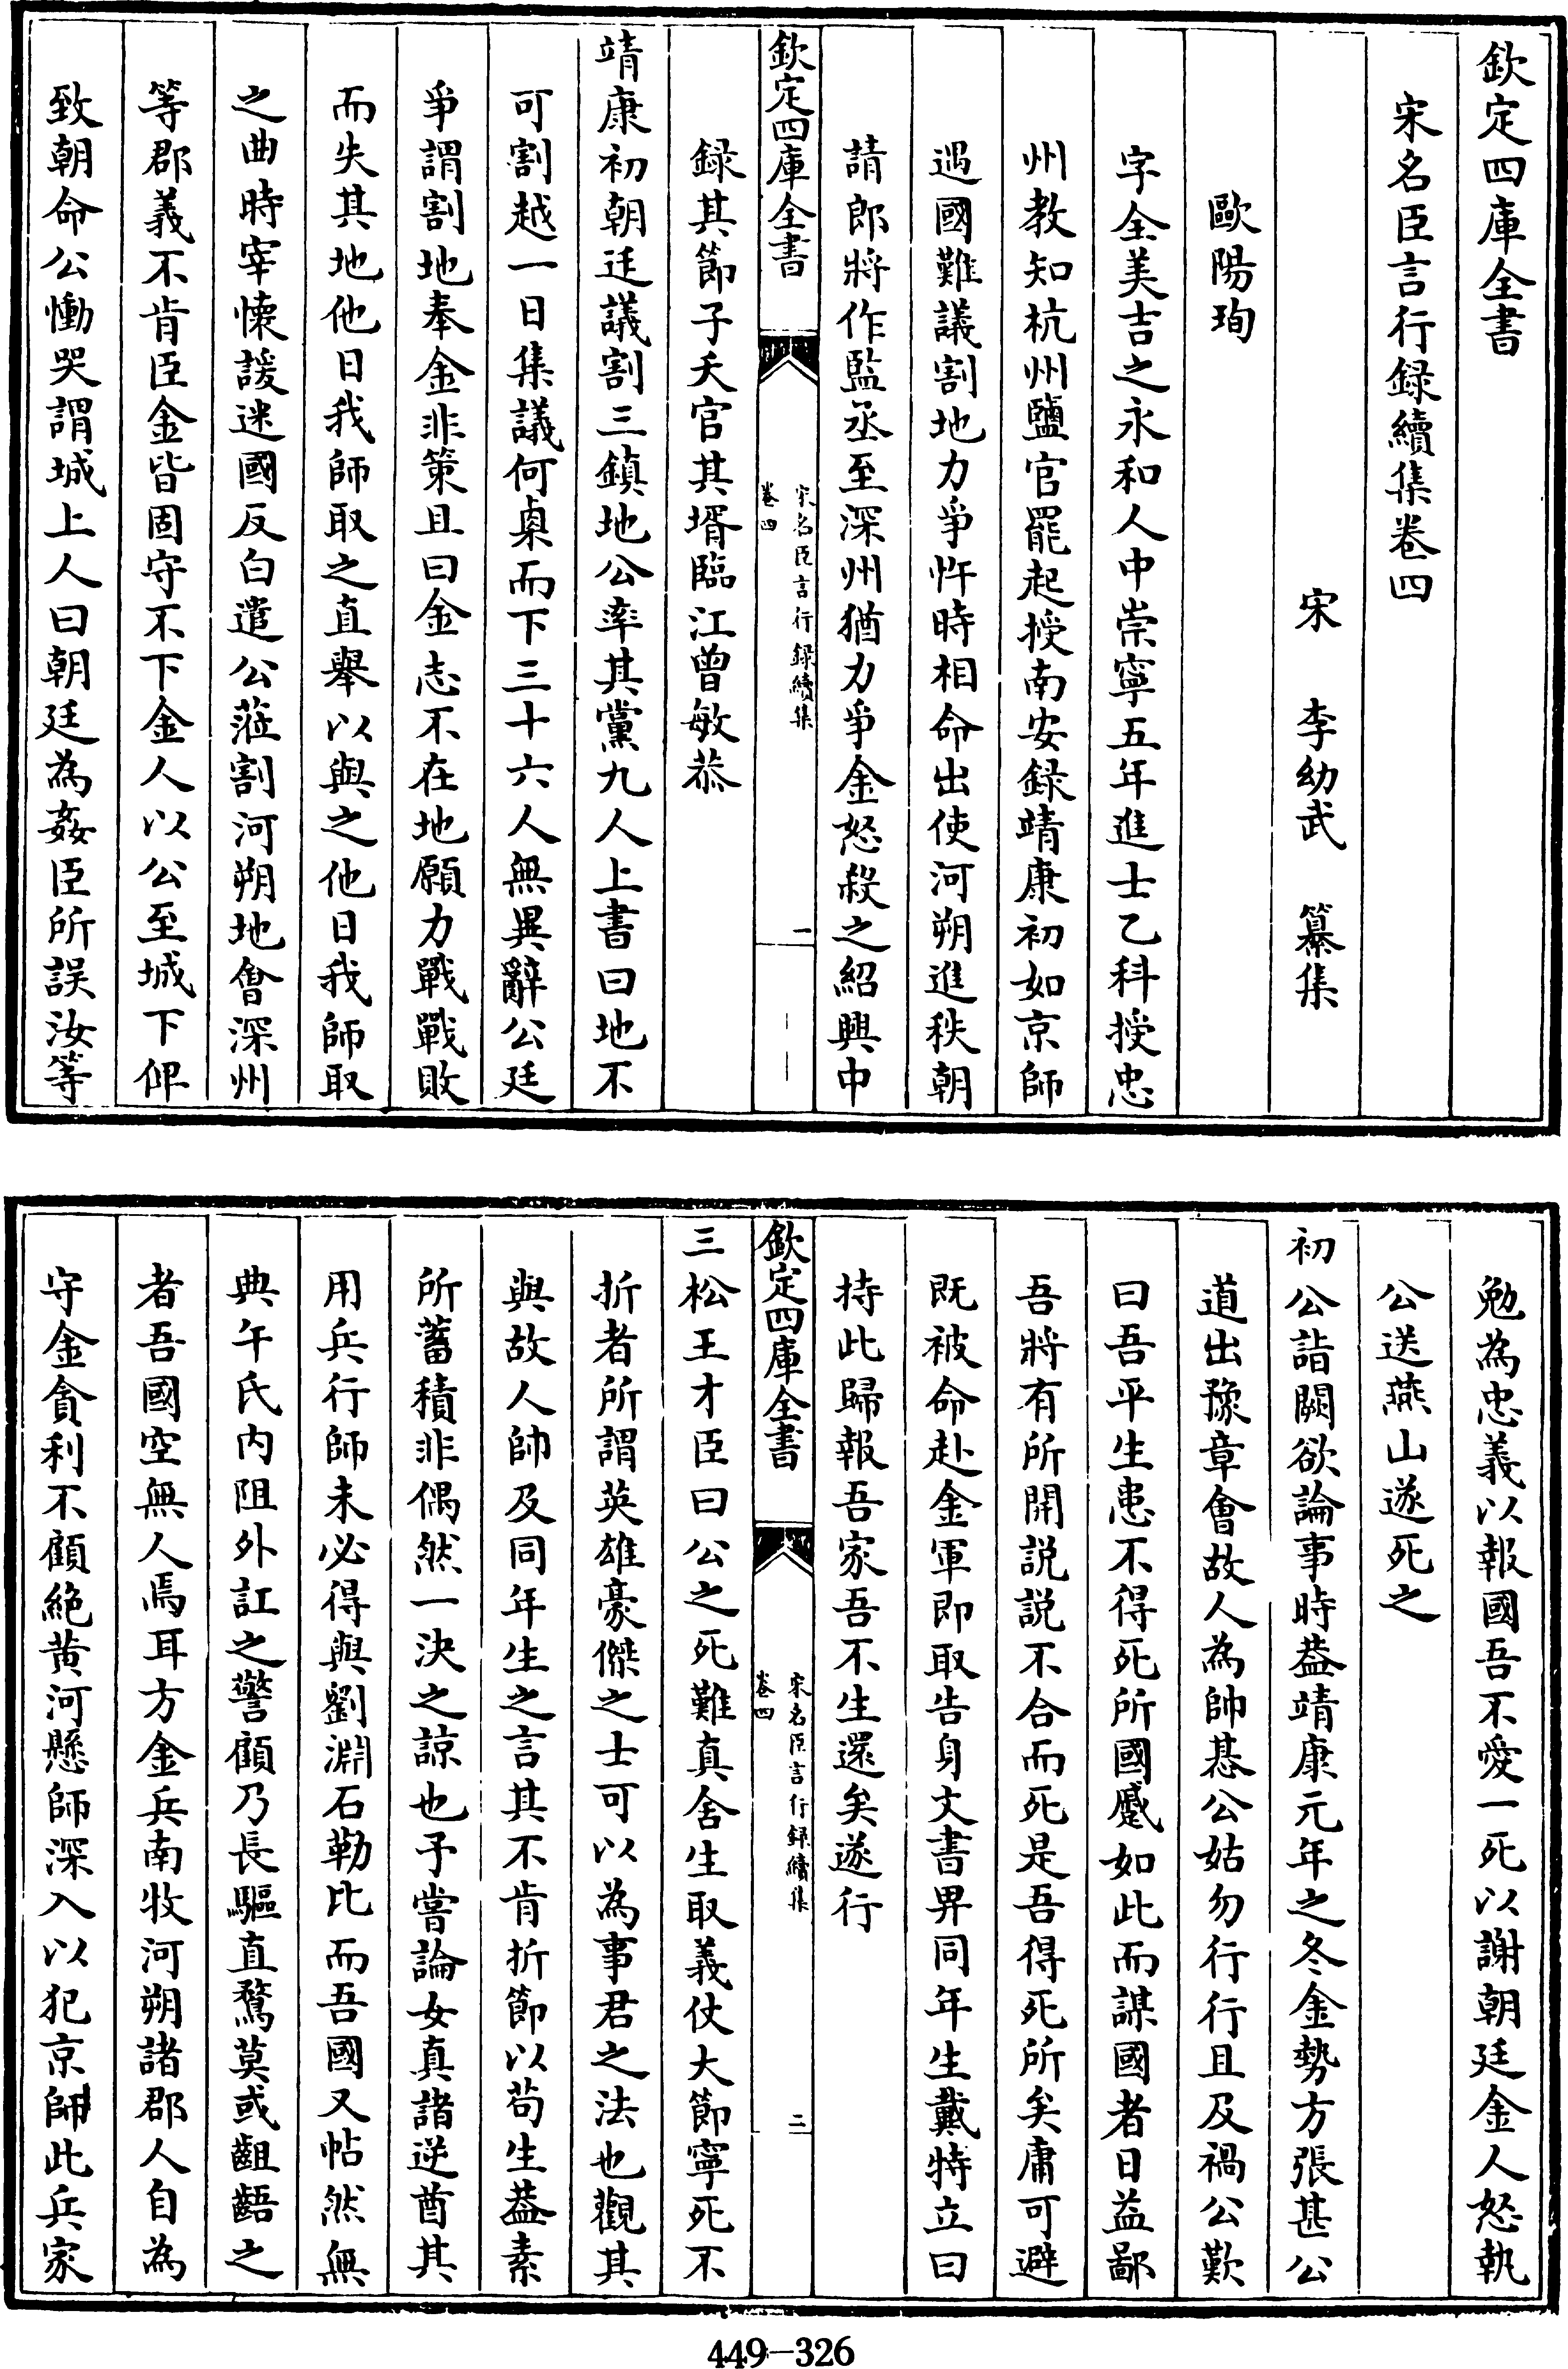 欽定四庫全書
宋名臣言行録續集卷四
宋 李幼武 纂集
歐陽珣
字全美吉之永和人中崇寧五年進士乙科授忠
州教知杭州鹽官罷起授南安録靖康初如京師
遇國難議割地力爭忤時相命出使河朔進秩朝
請郎將作監丞至深州猶力爭金怒殺之紹興中
欽定四庫全書
宋名臣言行録續集
卷四
一
録其節子夭官其壻臨江曾敏恭
靖康初朝廷議割三鎮地公率其黨九人上書曰地不
可割越一日集議何㮚而下三十六人無異辭公廷
爭謂割地奉金非策且曰金志不在地願力戰戰敗
而失其地他日我師取之直舉以與之他日我師取
之曲時宰懷諼迷國反白遣公蒞割河朔地會深州
等郡義不肯臣金皆固守不下金人以公至城下仰
致朝命公慟哭謂城上人曰朝廷為姦臣所誤汝等
勉為忠義以報國吾不愛一死以謝朝廷金人怒執
公送燕山遂死之
初公詣闕欲論事時葢靖康元年之冬金勢方張甚公
道出豫章會故人為帥惎公姑勿行行且及禍公歎
曰吾平生患不得死所國蹙如此而謀國者日益鄙
吾將有所開説説不合而死是吾得死所矣庸可避
既被命赴金軍即取告身文書畀同年生戴特立曰
持此歸報吾家吾不生還矣遂行
欽定四庫全書
宋名臣言行録續集
卷四
二
三松王才臣曰公之死難真舍生取義仗大節寧死不
折者所謂英雄豪傑之士可以為事君之法也觀其
與故人帥及同年生之言其不肯折節以苟生葢素
所蓄積非偶然一決之諒也予嘗論女真諸逆酋其
用兵行師未必得與劉淵石勒比而吾國又帖然無
典午氏内阻外訌之警顧乃長驅直騖莫或齟齬之
者吾國空無人焉耳方金兵南牧河朔諸郡人自為
守金貪利不顧絶黄河懸師深入以犯京師此兵家
449-326